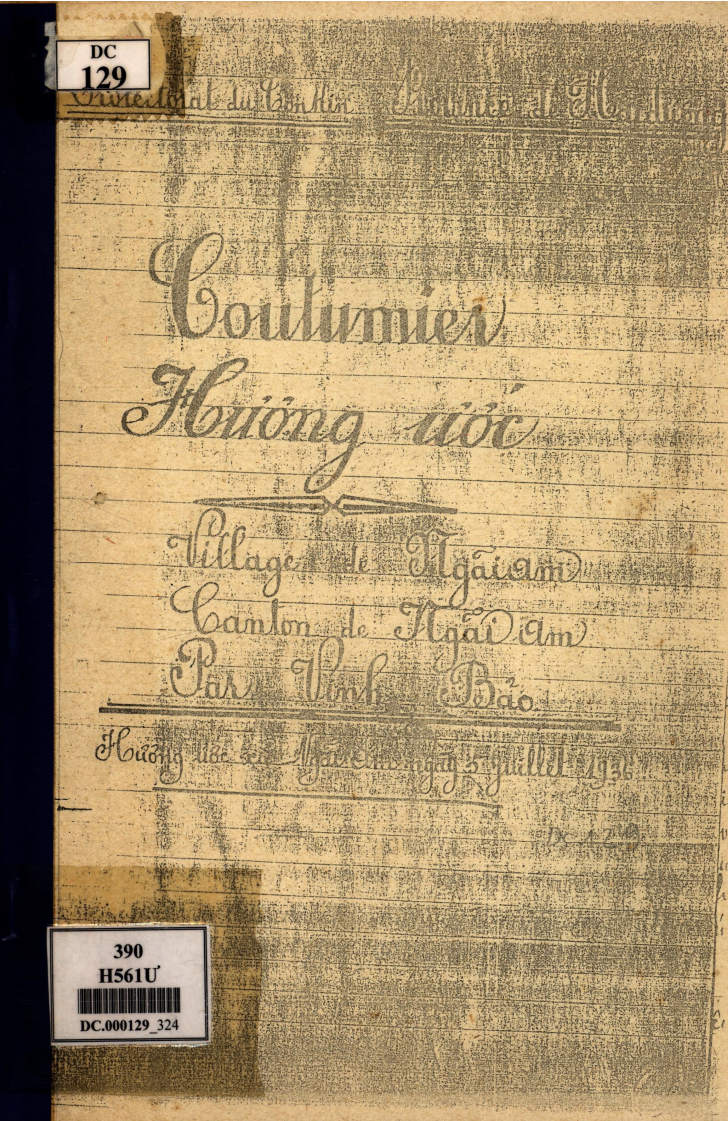 DC
129
Protectorat du Tonkin Province de Haiduong
Coutumier
Hương ước
Village de Ngãi am
Canton de Ngãi am
Vinh Bảo
Hương ước Ngãi am ngày 5 Juillet 1936
DC 129
390
H561Ư
DC.000129_324